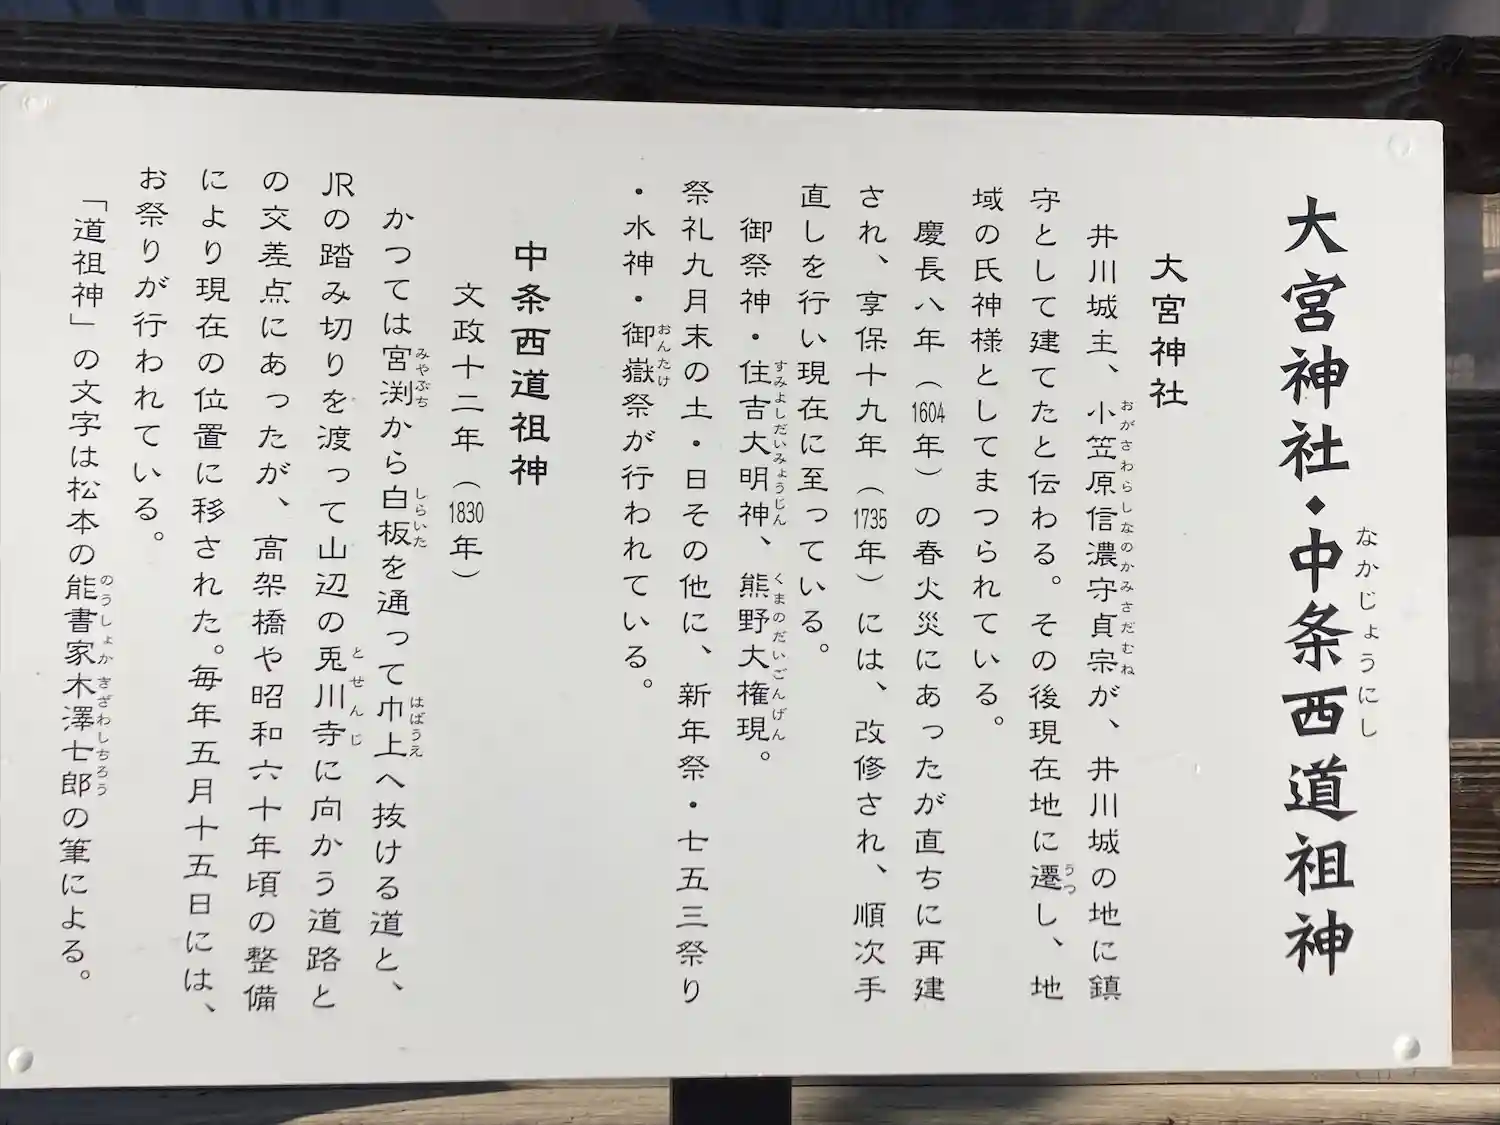 大宮神社・中条西道祖神
なかじょうにし
大宮神社
井川城主、小笠原信濃守貞宗が、井川城の地に鎮
おがさわらしなのかみさだむね
守として建てたと伝わる。その後現在地に遷し、地
うつ
域の氏神様としてまつられている。
慶長八年（1604年）の春火災にあったが直ちに再建
され、享保十九年（1735年）には、改修され、順次手
直しを行い現在に至っている。
御祭神・住吉大明神、熊野大権現。
すみよしだいみょうじん くまのだいごんげん
祭礼九月末の土・日その他に、新年祭・七五三祭り
・水神・御嶽祭が行われている。
おんたけ
中条西道祖神
文政十二年（1830年）
かつては宮渕から白板を通って巾上へ抜ける道と、
みやぶち しらいた はばうえ
JRの踏み切りを渡って山辺の兎川寺に向かう道路と
とせんじ
の交差点にあったが、高架橋や昭和六十年頃の整備
により現在の位置に移された。毎年五月十五日には、
お祭りが行われている。
「道祖神」の文字は松本の能書家木澤七郎の筆による。
のうしょか きざわしちろう